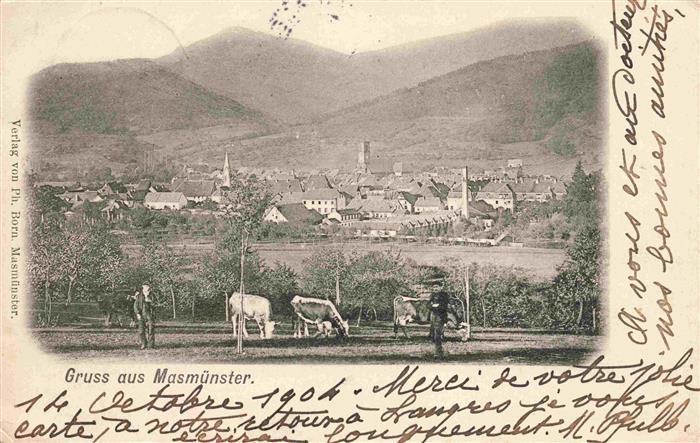 Verlag von Ph. Born, Masmünster.
Gruss aus Masmünster.
14 Octobre 1904. Merci de votre jolie
carte, a notre retour à Langres je vous
écrirai longuement. M.
à vous et au docteur
nos bonnes amitiés,